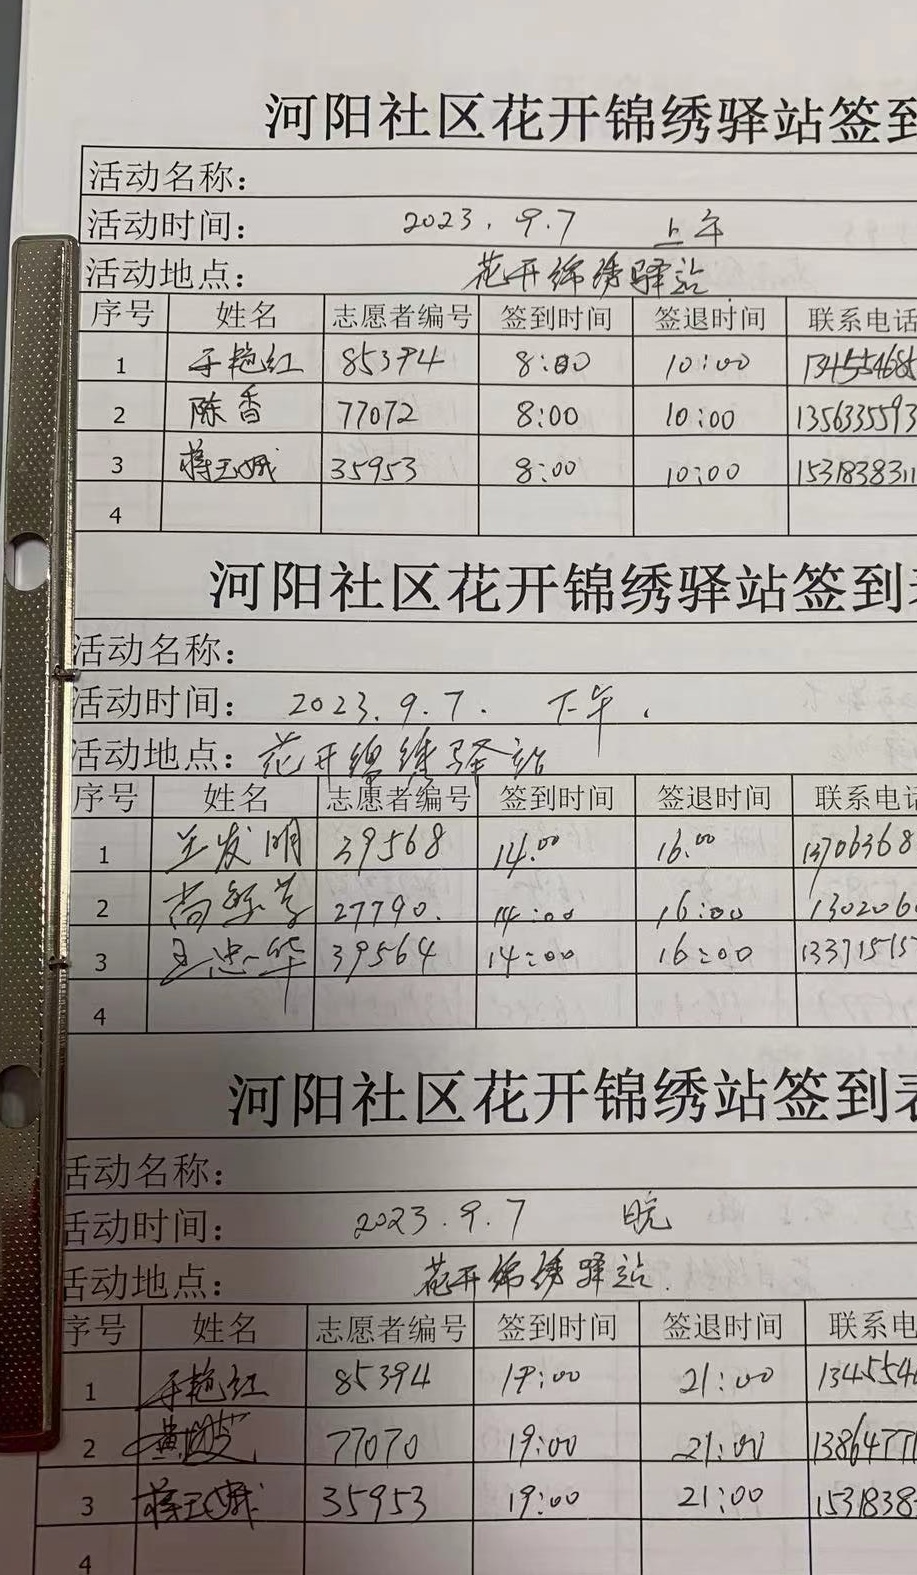 河阳社区花开锦绣驿站签到
活动名称：
活动时间： 2023.9.7 上午
活动地点： 花开锦绣驿站
序号 姓名 志愿者编号 签到时间 签退时间 联系电话
1 于艳红 85394 8:00 10:00 134554685
2 陈香 77072 8:00 10:00 1356335593
3 蒋玉娥 35953 8:00 10:00 1531838311
4
河阳社区花开锦绣驿站签到表
活动名称：
活动时间： 2023.9.7. 下午.
活动地点：花开锦绣驿站
序号 姓名 志愿者编号 签到时间 签退时间 联系电话
1 兰发明 39568 14.00 16.00 13706368
2 27790. 14:00 16:00 1302060
3 王忠华 39564 14:00 16:00 13371515
4
河阳社区花开锦绣站签到表
活动名称：
活动时间： 2023.9.7 晚
活动地点： 花开锦绣驿站.
序号 姓名 志愿者编号 签到时间 签退时间 联系电
1 于艳红 85394 19:00 21:00 1345546
2 77070 19:00 21:00 13864771
3 蒋玉娥 35953 19:00 21:00 1531838
4